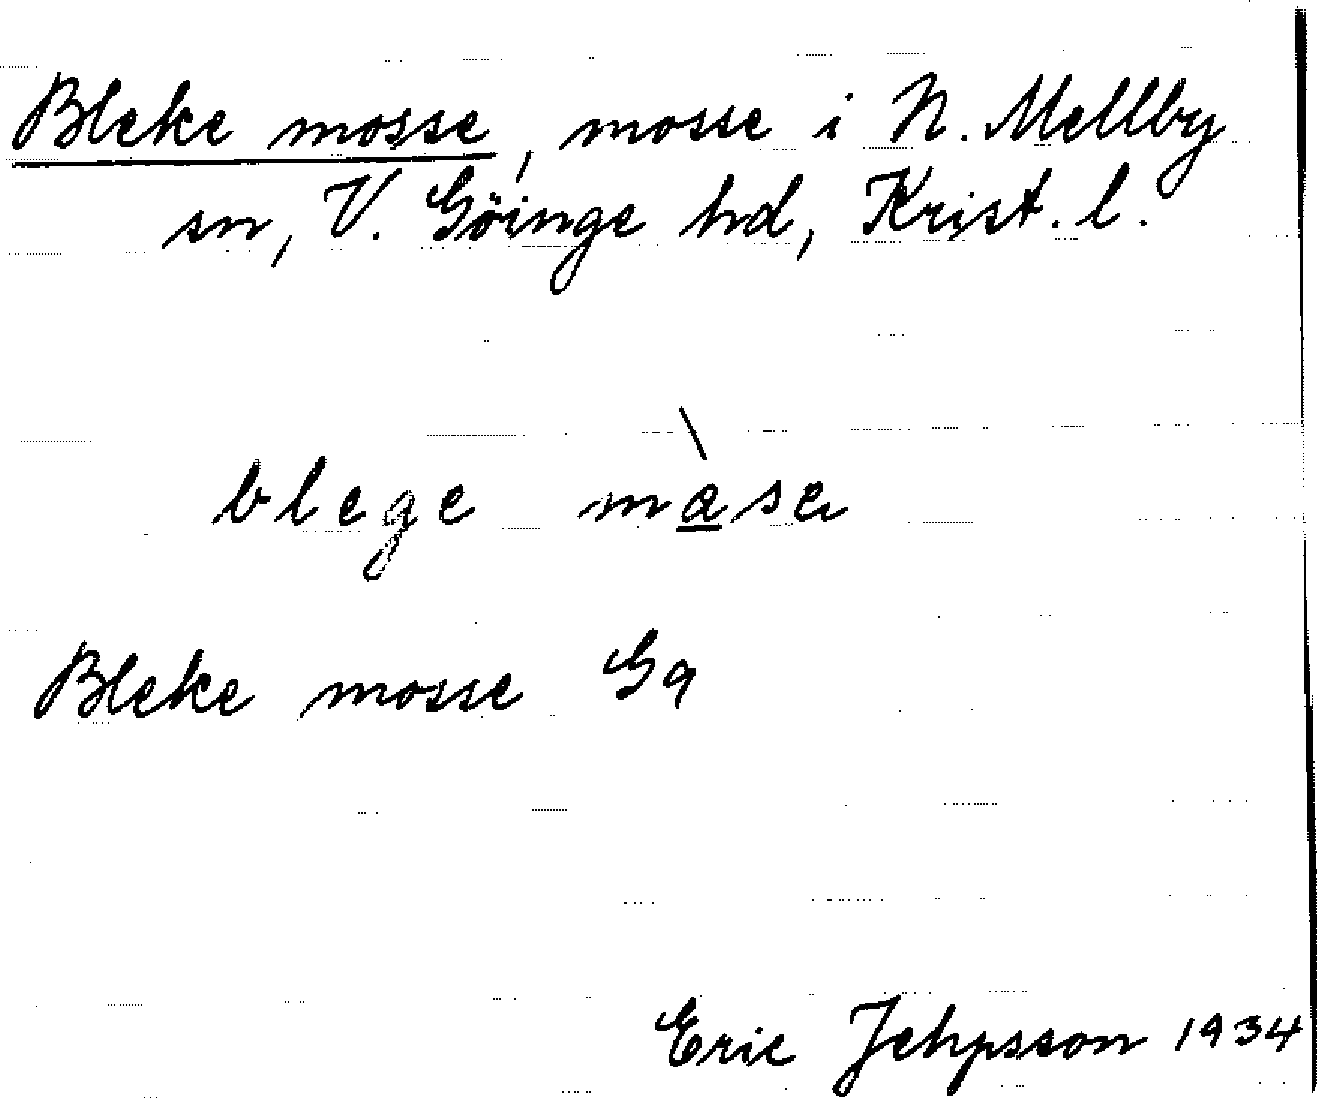 Bleke mosse, mosse i N. Mellby
sn, V. Göinge hd, Krist. l.
blege måse
Bleke mosse Ga
Eric Jehpsson 1934